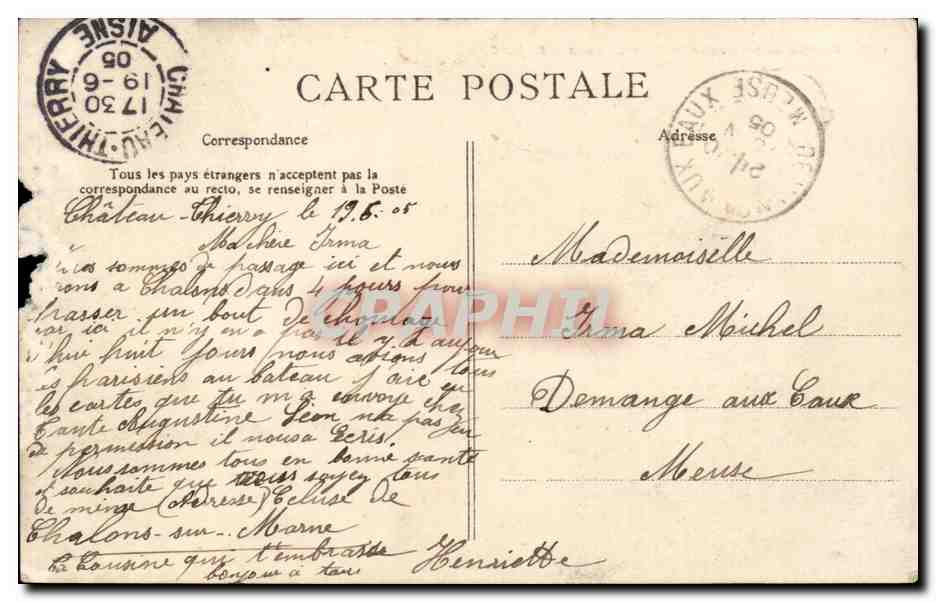 CHATEAU-THIERRY
AISNE
17 30
19-6
05
CARTE POSTALE
MEUSE
05
Correspondance
Adresse
Tous les pays étrangers n'acceptent pas la
correspondance au recto, se renseigner à la Poste
Château-Thierry le 19.6.05
Ma chère Irma
sommes de passage ici et nous
rons a Chalons dans 4 jours pour
passer un bout de chomage
car ici il n'y en a pas il y a aujour
d'hui huit jours nous avions tous
les parisiens au bateau j'aie eu
les cartes que tu m'a envoye chez
Tante Augustine Léon n'a pas eu
de permission il nous a Ecris.
Nous sommes tous en bonne sante
et souhaite que vous soyez tous
de meme (Adresse) Ecluse de
Chalons-sur-Marne
Ta Cousine qui t'embrasse
bonjour a tous
Henriette
Mademoiselle
Irma Michel
Demange aux Eaux
Meuse
GRAPHIL